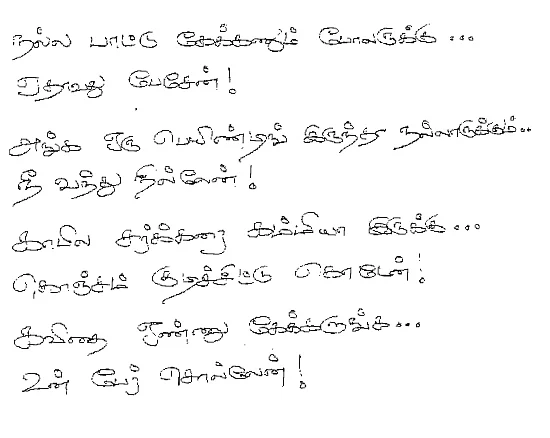 நல்ல பாட்டு கேக்கணும் போலருக்கு ...
ஏதாவது பேசேன்!
அங்க ஒரு பெயிண்டிங் இருந்தா நல்லாருக்கும்..
நீ வந்து நில்லேன்!
காபில சர்க்கரை கம்மியா இருக்கு ...
கொஞ்சம் குடிச்சிட்டு கொடேன்!
கவிதை ஒண்ணு கேக்குறாங்க ...
உன் பேர் சொல்லேன்!